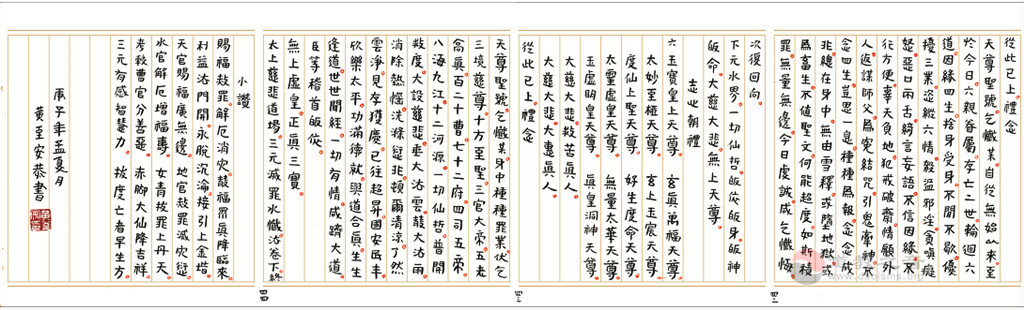 從此已上禮念
天尊聖號乞懺某自從無始以來至
於今日六親眷屬存亡二世輪迴六
道因緣四生捨身受身不閒歇優
擾三業恣縱六情毀盜邪淫貪嗔癡
怒惡口兩舌綺言妄語不信因緣不
行方便辜天負地私戒破齋情願外
人返謀師父為冤結咒引鬼牽神不
念四生豈思一息種種為報念念成
非總在身中無由雪釋或墮地獄或
為畜生不值聖文何能超度如斯積
罪無量無邊今日虔誠乞懺悔
次復回向
下元水界一切仙哲皈依皈身皈神
皈命大慈大悲無上天尊
志心朝禮
六玉寶皇上天尊 玄真萬福天尊
太妙至極天尊 玄上玉宸天尊
度仙上聖天尊 好生度命天尊
太靈虛皇天尊 無量太華天尊
玉虛明皇天尊 真皇洞神天尊
大慈大悲救苦真人
大慈大悲大惠真人
從此已上禮念
天尊聖號乞懺某身中種種罪業伏乞
三境慈尊十方至聖三官大帝五老
高真百二十曹七十二府四司五帝
八海九江十二河源一切仙哲普開
救度大設慈悲垂大法雲敲大法雨
消除熱惱洗滌愆非頓爾清涼了然
雲淨見存獲慶已往超昇國安民丰
欣樂太平功滿德就與道合真生生
逢道世世聞經一切有情咸躋大道
臣等稽首皈依
無上虛皇正真三寶
太上慈悲道場三元滅罪水懺法卷下終
小讚
賜福赦罪解厄消災敲福界真降臨來
利益法門開永脫沉淪接引上金堦
天官賜福廣無邊 地官赦罪滅災愆
水官解厄增福壽 女青拔罪上丹天
考救曹官分善惡 赤腳大仙降吉祥
三元有感智慧力 拔度亡者早生方
庚子年孟夏月
黃至安恭書